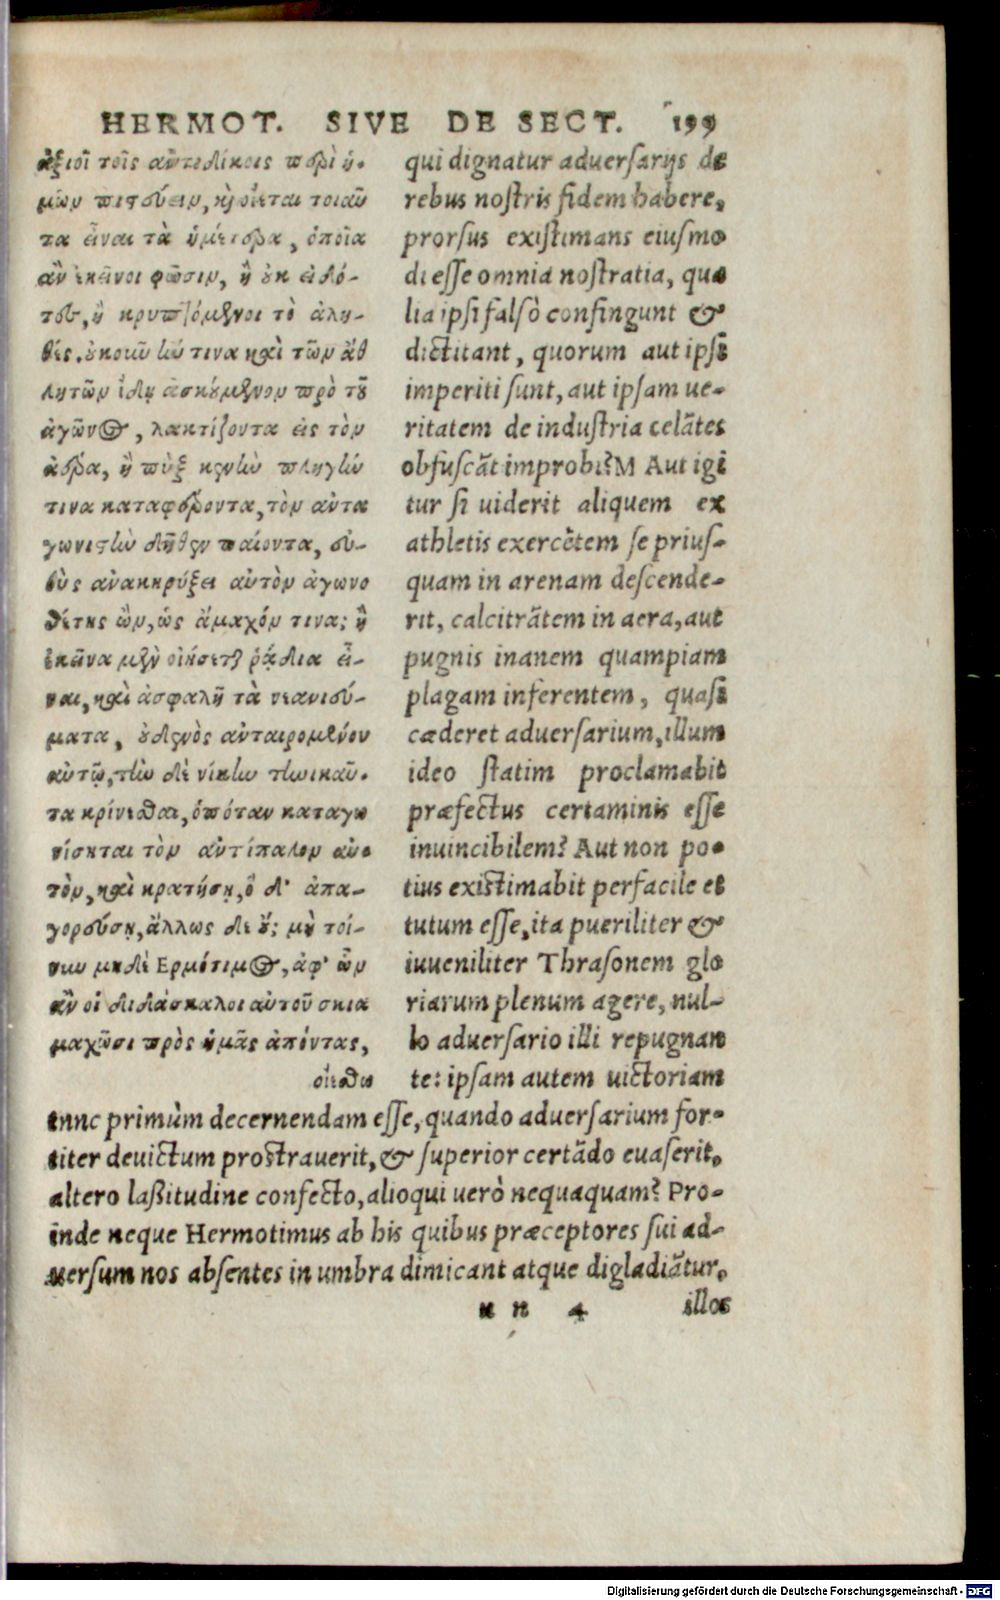 HERMOT. SIVE DE SECT. 199
ἀξιοῖ τοῖς ἀντιδίκοις περὶ ἡ-
μῶν πιστεύειν, καὶ οἴεται τοιαῦ
τα εἶναι τὰ ἡμέτερα, ὁποῖα
ἂν ἐκεῖνοι φῶσιν, ἢ οὐκ εἰδό-
τες, ἢ κρυπτόμενοι τὸ ἀλη-
θές. οὐκοῦν ἤν τινα καὶ τῶν ἀθ
λητῶν ἴδῃ ἀσκούμενον πρὸ τοῦ
ἀγῶνος, λακτίζοντα εἰς τὸν
ἀέρα, ἢ πὺξ κενὴν πληγήν
τινα καταφέροντα, τὸν ἀντα
γωνιστὴν δῆθεν παίοντα, εὐ-
θὺς ἀνακηρύξει αὐτὸν ἀγωνο
θέτης ὢν, ὡς ἄμαχόν τινα; ἢ
ἐκεῖνα μὲν οἰήσεται ῥᾴδια εἶ-
ναι, καὶ ἀσφαλῆ τὰ νεανιεύ-
ματα, οὐδενὸς ἀνταιρομένου
αὐτῷ, τὴν δὲ νίκην τηνικαῦ-
τα κρίνεσθαι, ὁπόταν καταγω
νίσηται τὸν ἀντίπαλον αὐ-
τὸν, καὶ κρατήσῃ, ὁ δ' ἀπα-
γορεύσῃ, ἄλλως δὲ οὔ; μὴ τοί-
νυν μηδὲ Ερμότιμος, ἀφ' ὧν
ἂν οἱ διδάσκαλοι αὐτοῦ σκια
μαχῶσι πρὸς ἡμᾶς ἀπόντας,
οἰέσθω
qui dignatur adversarijs de
rebus nostris fidem habere,
prorsus existimans eiusmo
di esse omnia nostratia, qua
lia ipsi falsò confingunt &
dictitant, quorum aut ipsi
imperiti sunt, aut ipsam ue-
ritatem de industria celātes
obfuscāt improbi? M Aut igi
tur si uiderit aliquem ex
athletis exercētem se prius-
quam in arenam descende-
rit, calcitrātem in aera, aut
pugnis inanem quampiam
plagam inferentem, quasi
cæderet adversarium, illum
ideo statim proclamabit
præfectus certaminis esse
inuincibilem? Aut non po-
tius existimabit perfacile et
tutum esse, ita pueriliter &
iuueniliter Thrasonem glo
riarum plenum agere, nul-
lo adversario illi repugnan
te: ipsam autem uictoriam
tunc primùm decernendam esse, quando adversarium for-
titer deuictum prostrauerit, & superior certādo euaserit,
altero laßitudine confecto, alioqui uerò nequaquam? Pro-
inde neque Hermotimus ab his quibus præceptores sui ad-
uersum nos absentes in umbra dimicant atque digladiātur,
n n 4 illos
Digitalisierung gefördert durch die Deutsche Forschungsgemeinschaft - DFG